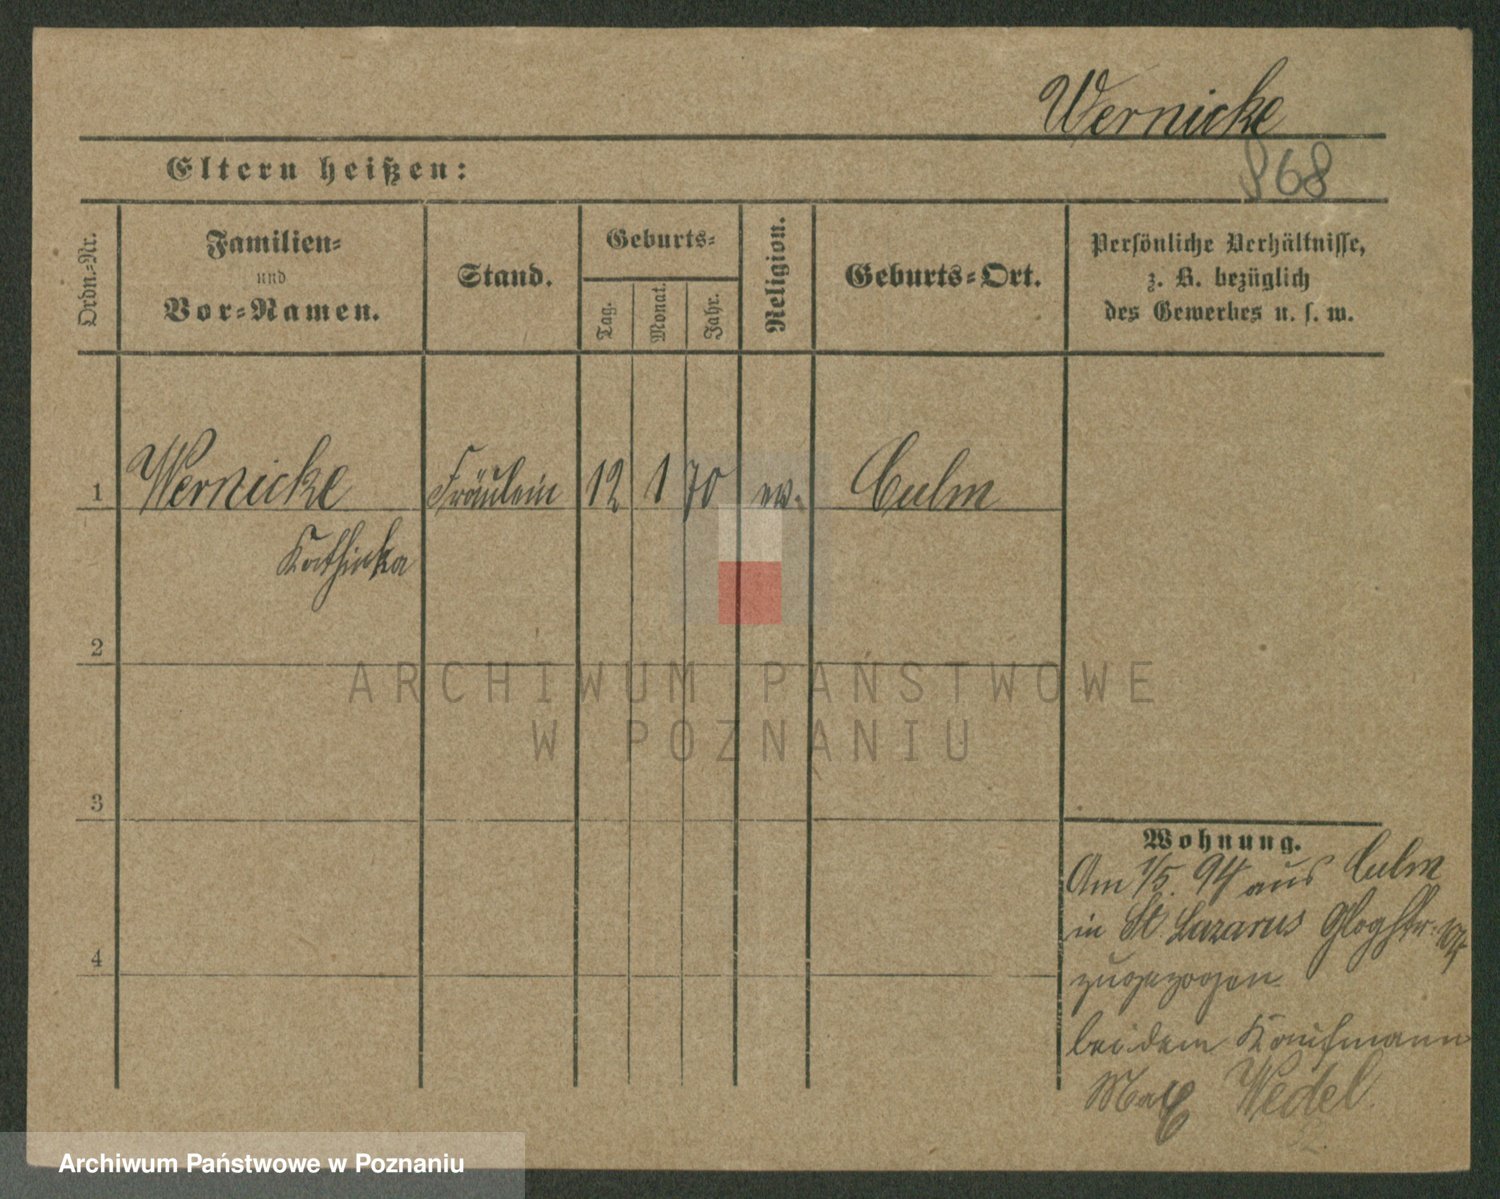 Wernicke
868
Eltern heißen:
Ordn.-Nr.
Familien-
und
Vor-Namen.
Stand.
Geburts-
Tag.
Monat.
Jahr.
Religion.
Geburts-Ort.
Persönliche Verhältnisse,
z. B. bezüglich
des Gewerbes u. s. w.
1 Wernicke Fräulein 12 1 70 ev. Culm
Kathinka
2
3
4
Wohnung.
Am 1/5. 94 aus Culm
in St. Lazarus Glogstr.
zugezogen
bei dem Kaufmann
Max Wedel.
ARCHIWUM PAŃSTWOWE
W POZNANIU
Archiwum Państwowe w Poznaniu